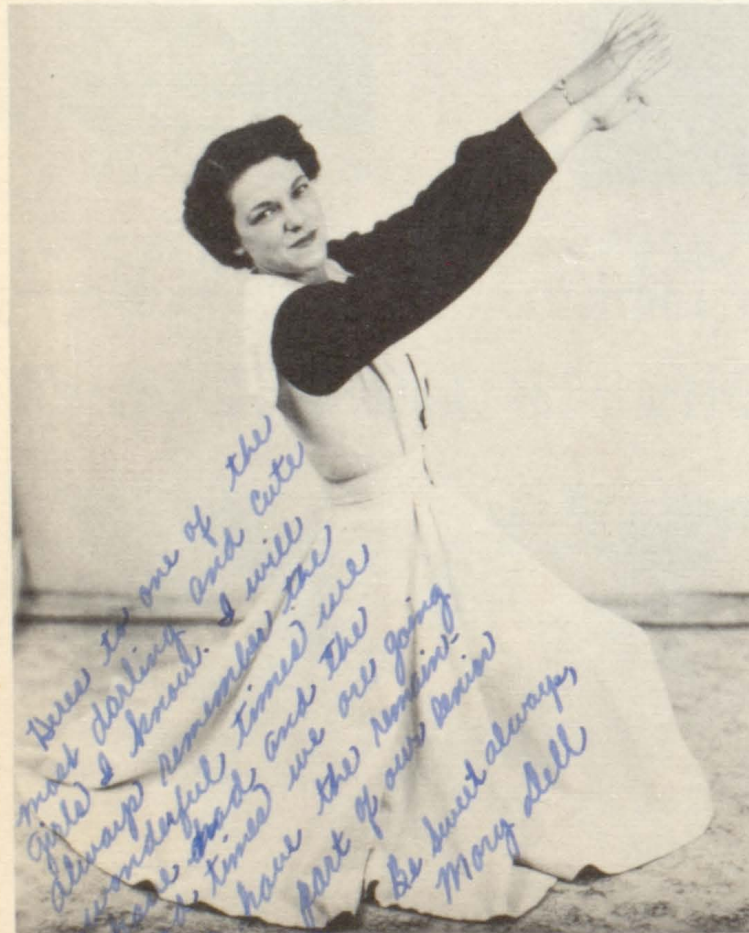 Heres to one of the
most darling and cute
girls I know. I will
always remember the
wonderful times we
have had and the
times we are going
have the remain-
part of our senior
Be sweet always,
Mary Dell